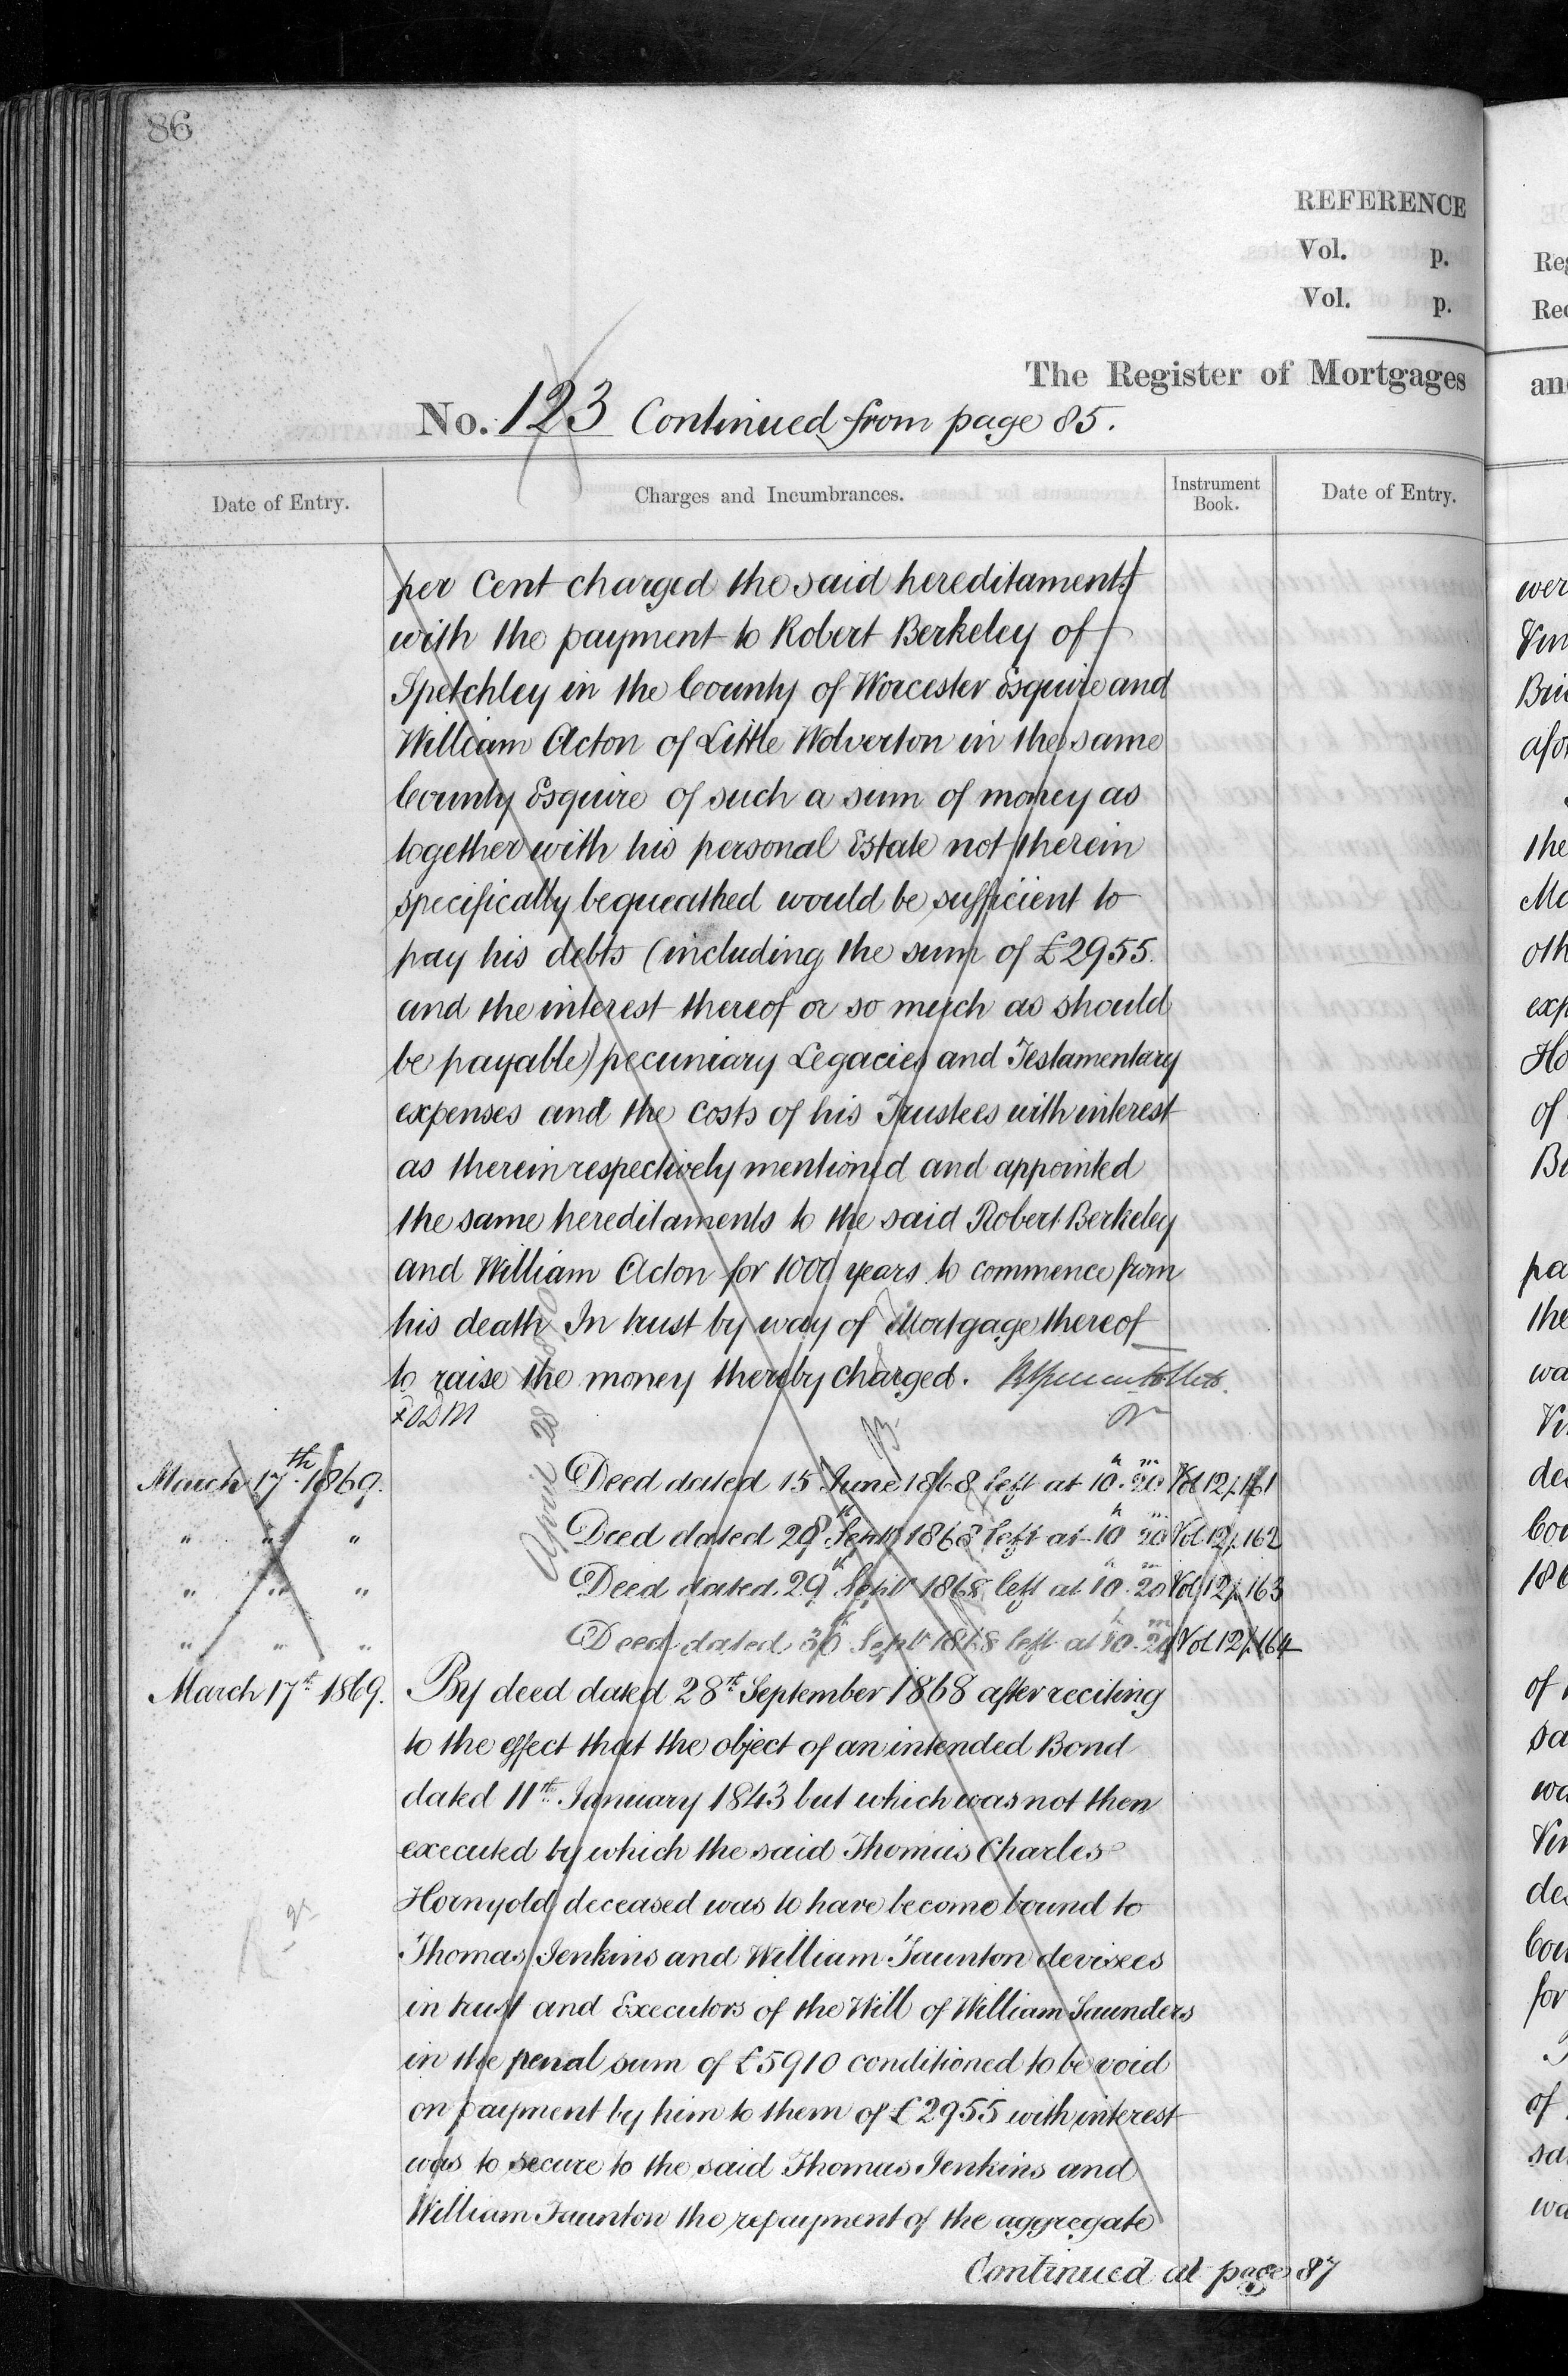 86
REFERENCE
Vol. p.
Vol. p.
The Register of Mortgages
No. 123 Continued from page 85.
Date of Entry. Charges and Incumbrances. Instrument Book. Date of Entry.
per Cent charged the said hereditaments
with the payment to Robert Berkeley of
Spetchley in the County of Worcester Esquire and
William Acton of Little Wolverton in the same
County Esquire of such a sum of money as
together with his personal Estate not therein
specifically bequeathed would be sufficient to
pay his debts (including the sum of £2955.
and the interest thereof or so much as should
be payable) pecuniary Legacies and Testamentary
expenses and the costs of his Trustees with interest
as therein respectively mentioned and appointed
the same hereditaments to the said Robert Berkeley
and William Acton for 1000 years to commence from
his death In trust by way of Mortgage thereof
to raise the money thereby charged.
March 17th 1869. Deed dated 15 June 1868 left at 10h. 20m Vol 12 p. 161
" " " Deed dated 28th Septr 1868 left at 10h 20m Vol 12 p. 162
" " " Deed dated 29th Septr 1868 left at 10h. 20m Vol 12 p. 163
" " " Deed dated 30th Septr 1868 left at 10h. 20m Vol 12 p. 164
March 17th 1869. By deed dated 28th September 1868 after reciting
to the effect that the object of an intended Bond
dated 11th January 1843 but which was not then
executed by which the said Thomas Charles
Hornyold deceased was to have become bound to
Thomas Jenkins and William Taunton devisees
in trust and Executors of the Will of William Saunders
in the penal sum of £5910 conditioned to be void
on payment by him to them of £2955 with interest
was to secure to the said Thomas Jenkins and
William Taunton the repayment of the aggregate
Continued at page 87